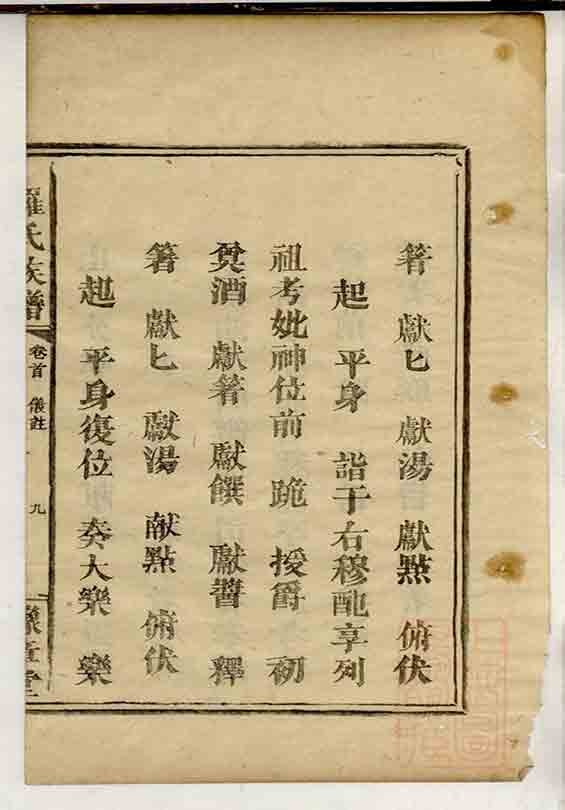 箸 獻匕 獻湯 獻點 俯伏
起 平身 詣于右穆配享列
祖考妣神位前 跪 授爵 初
奠酒 獻箸 獻饌 獻醬 釋
箸 獻匕 獻湯 献點 俯伏
起 平身復位 奏大樂 樂
羅氏族譜
卷首 儀註
九